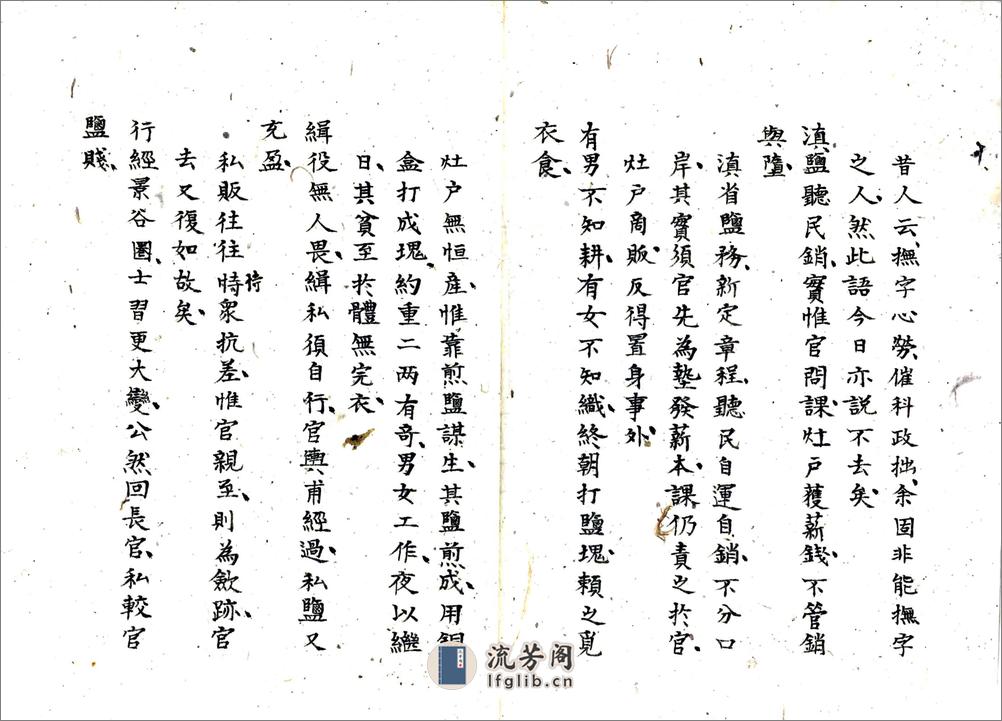 昔人云、撫字心勞、催科政拙、余固非能撫字
之人、然此語今日亦説不去矣、
滇鹽聽民銷、實惟官問課、灶戸獲薪錢、不管銷
與墮、
滇省鹽務、新定章程、聽民自運自銷、不分口
岸、其實須官先為墊發薪本、課仍責之扵官、
灶戸商販、反得置身事外、
有男不知耕、有女不知織、終朝打鹽塊、賴之覓
衣食、
灶户無恒産、惟靠煎鹽謀生、其鹽煎成、用銅
盒打成塊、約重二两有奇、男女工作、夜以繼
日、其貧至扵體無完衣、
緝役無人畏、緝私須自行、官輿甫經過、私鹽又
充盈、
私販往往恃衆抗差、惟官親至、則為斂跡、官
恃
去又復如故矣、
行經景谷圏、士習更大變、公然回長官、私較官
鹽賤、
流芳阁
lfglib.cn